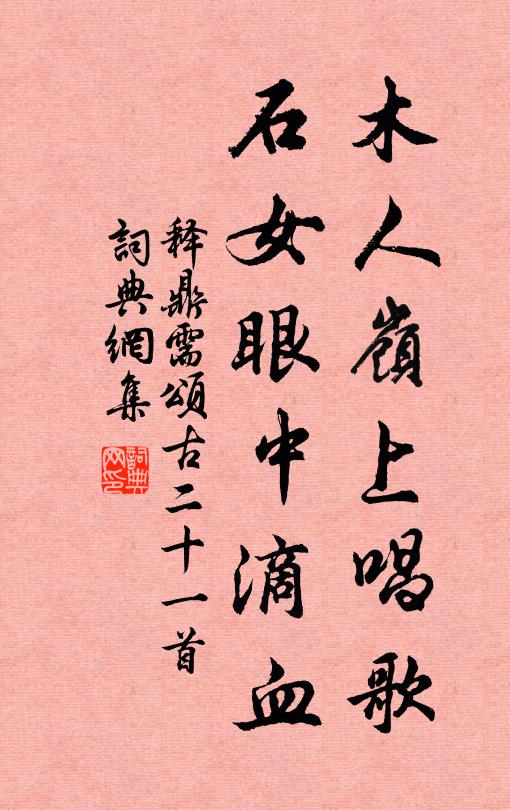 木人嶺上唱歌
石女眼中滴血
释鼎需頌古二十一首
詞典網集
詞典网印